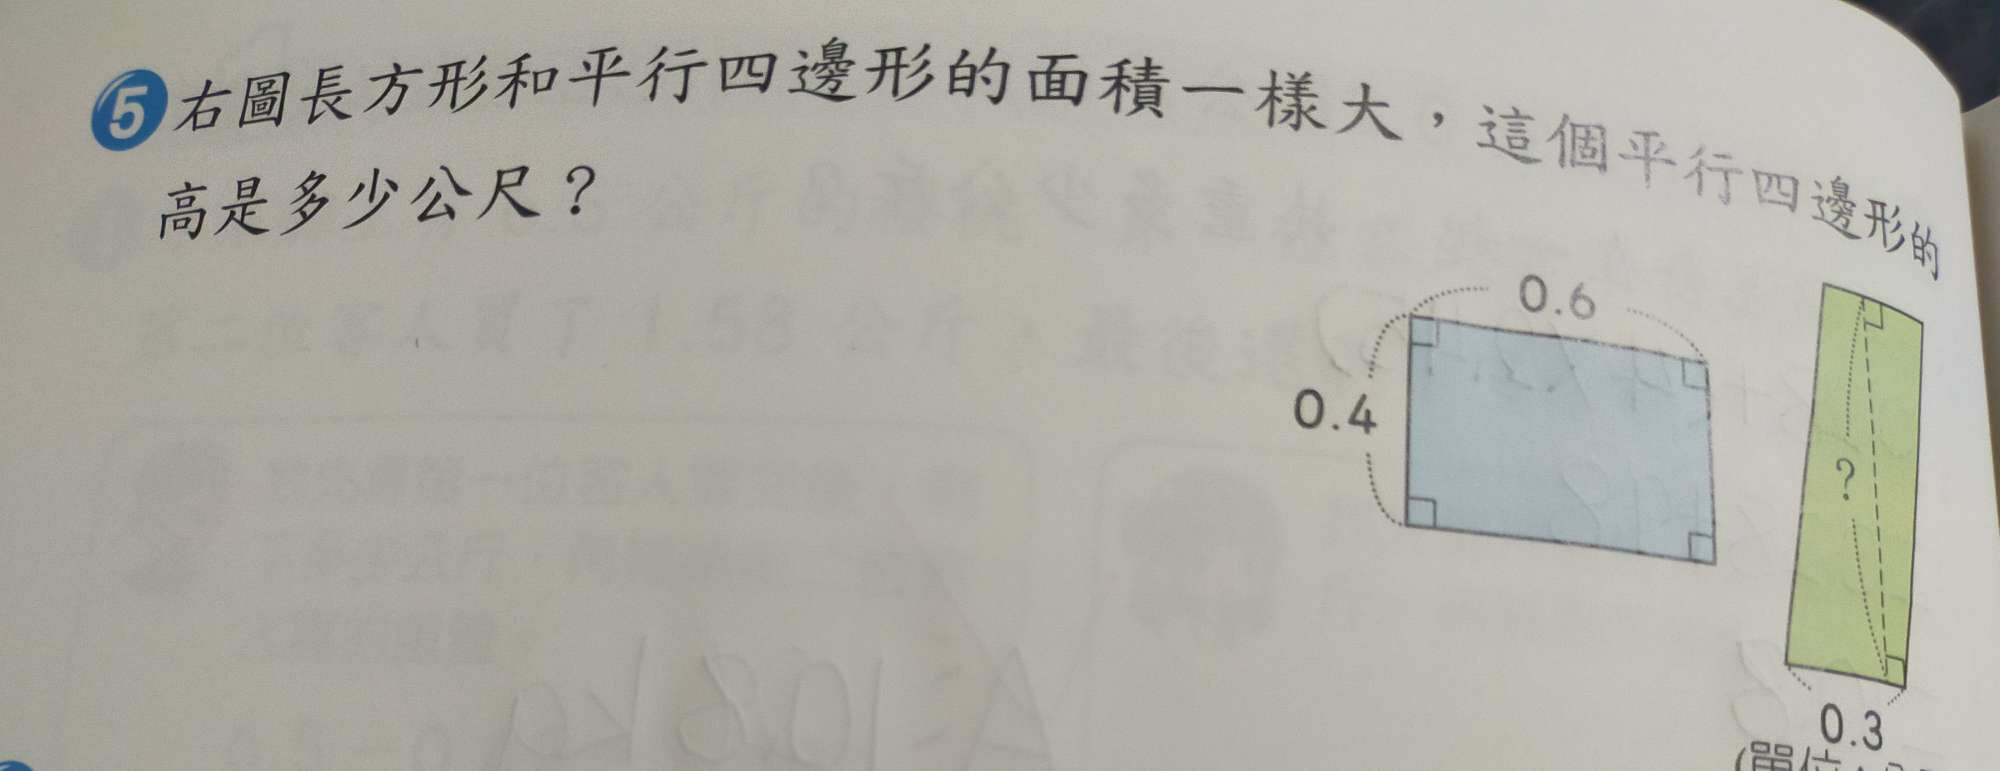 5 右圖長方形和平行四邊形的面積一樣大，這個平行四邊形的
高是多少公尺？
0.6
0.4
?
0.3
(單位：